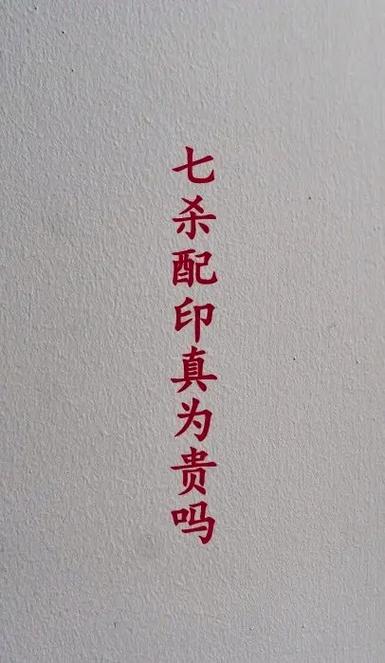 七杀配印真为贵吗